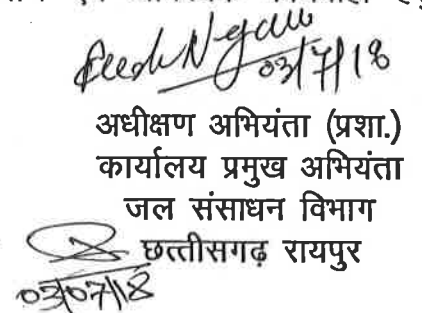 03/7/18
अधीक्षण अभियंता (प्रशा.)
कार्यालय प्रमुख अभियंता
जल संसाधन विभाग
छत्तीसगढ़ रायपुर
03/07/18